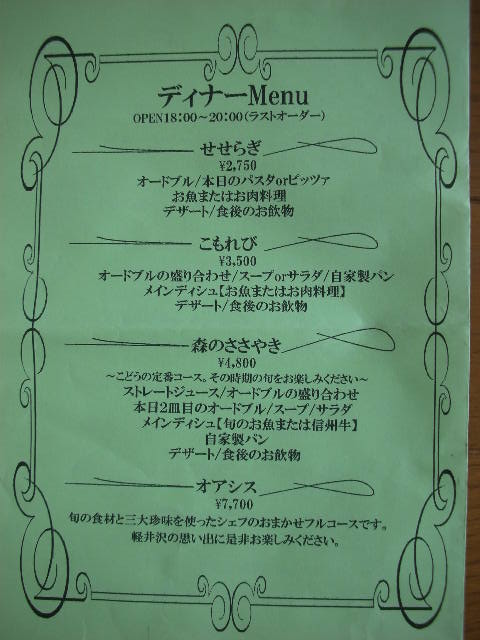 ディナーMenu
OPEN18:00～20:00(ラストオーダー)
せせらぎ
¥2,750
オードブル/本日のパスタorピッツァ
お魚またはお肉料理
デザート/食後のお飲物
こもれび
¥3,500
オードブルの盛り合わせ/スープorサラダ/自家製パン
メインディシュ【お魚またはお肉料理】
デザート/食後のお飲物
森のささやき
¥4,800
～こどうの定番コース。その時期の旬をお楽しみください～
ストレートジュース/オードブルの盛り合わせ
本日2皿目のオードブル/スープ/サラダ
メインディシュ【旬のお魚または信州牛】
自家製パン
デザート/食後のお飲物
オアシス
¥7,700
旬の食材と三大珍味を使ったシェフのおまかせフルコースです。
軽井沢の思い出に是非お楽しみください。